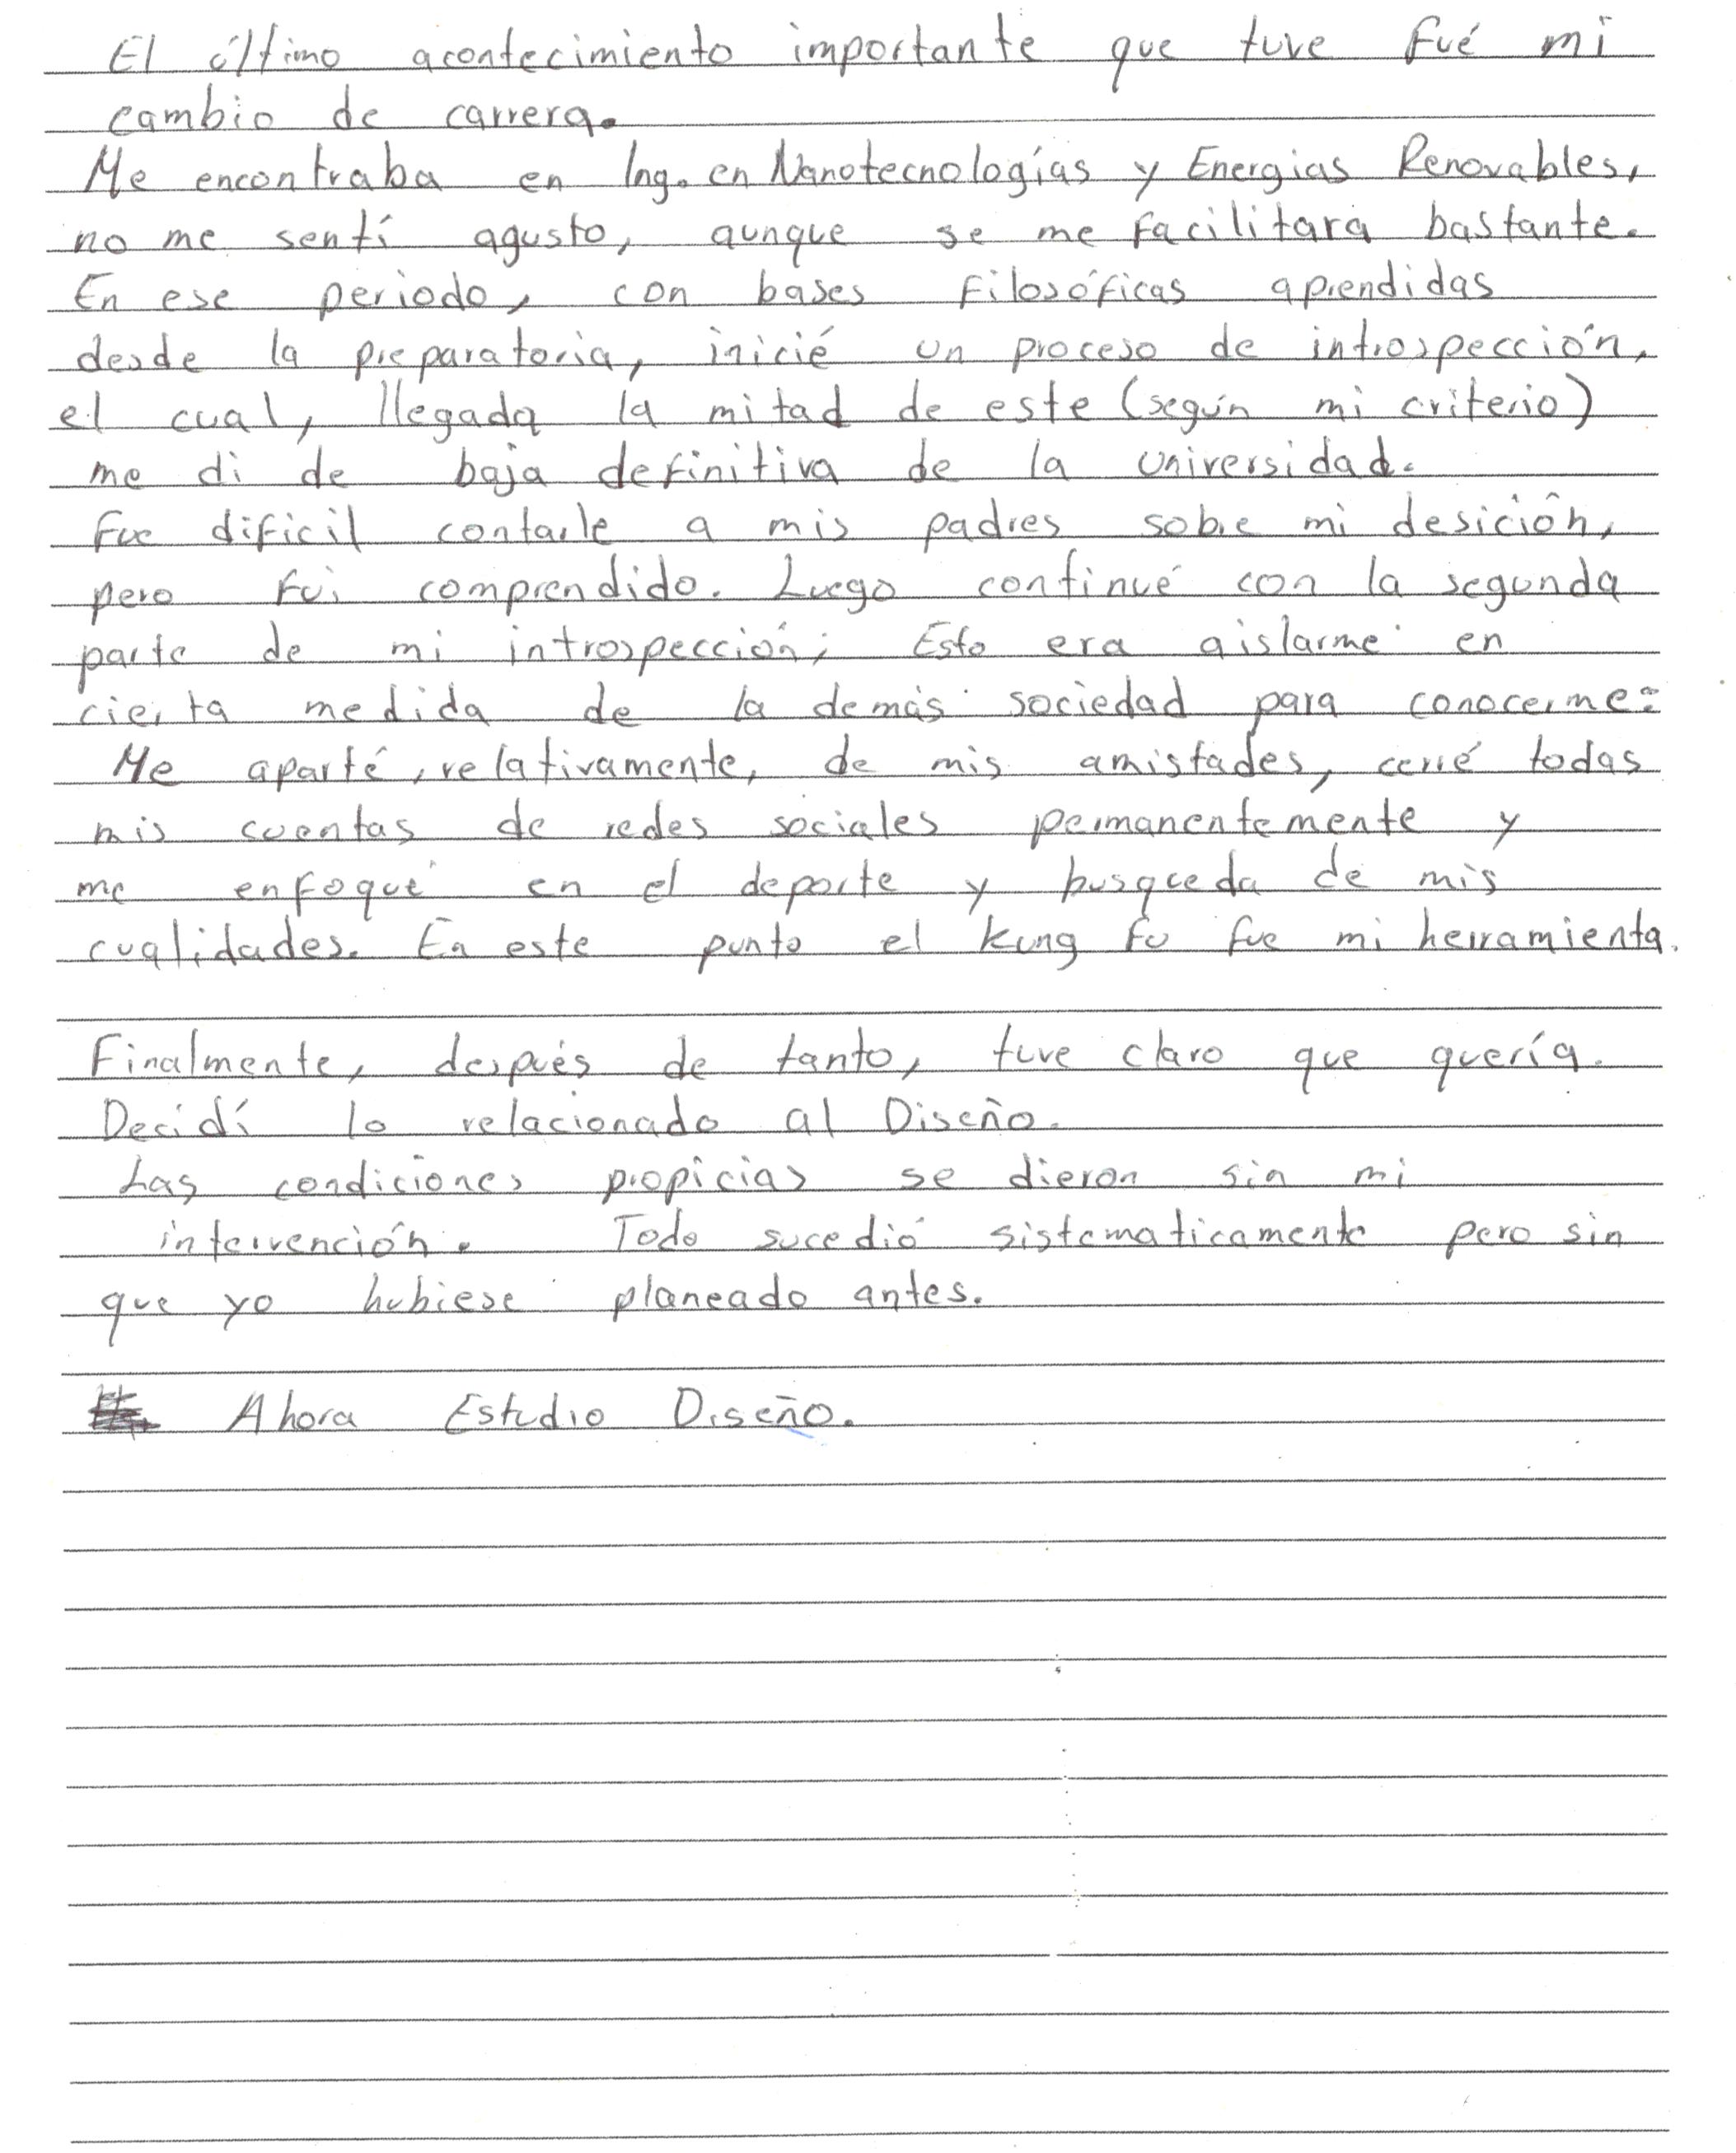 El último acontecimiento importante que tuve fué mi
cambio de carrera.
Me encontraba en Ing. en Nanotecnologías y Energias Renovables,
no me sentí agusto, aunque se me facilitara bastante.
En ese periodo, con bases filosóficas aprendidas
desde la preparatoria, inicié un proceso de introspección,
el cual, llegada la mitad de este (según mi criterio)
me di de baja definitiva de la universidad.
Fue dificil contarle a mis padres sobre mi desición,
pero fui comprendido. Luego continué con la segunda
parte de mi introspección; Esto era aislarme en
cierta medida de la demás sociedad para conocerme:
Me aparté, relativamente, de mis amistades, cerré todas
mis cuentas de redes sociales permanentemente y
me enfoqué en el deporte y busqueda de mis
cualidades. En este punto el kung fu fue mi herramienta.
Finalmente, después de tanto, tuve claro que quería.
Decidí lo relacionado al Diseño.
Las condiciones propicias se dieron sin mi
intervención. Todo sucedió sistematicamente pero sin
que yo hubiese planeado antes.
Ahora Estudio Diseño.